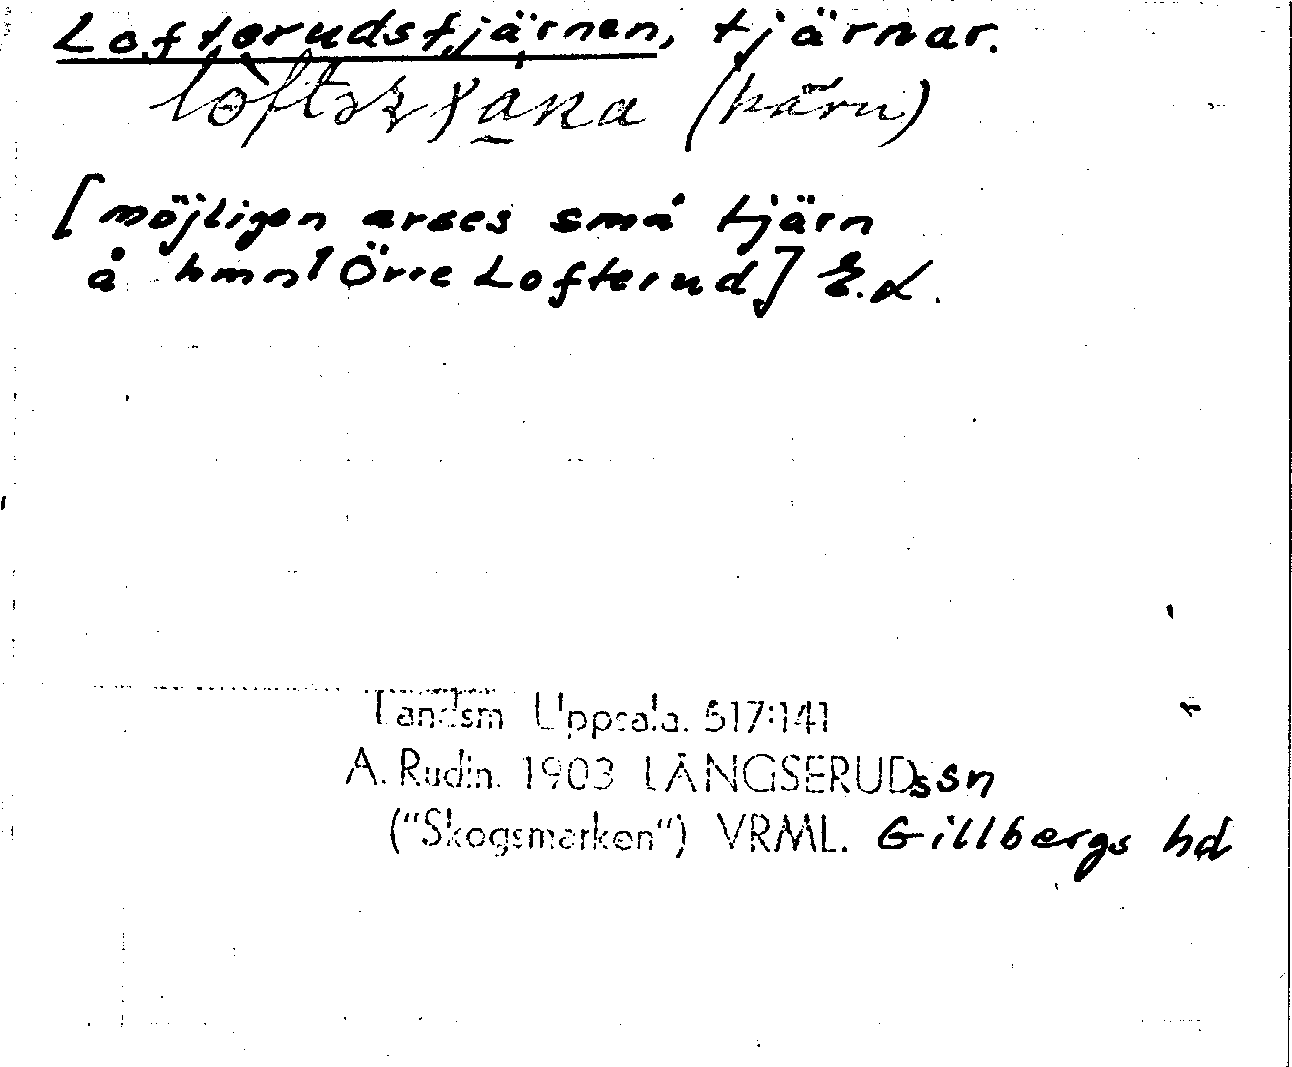 Lofterudstjärnen, tjärnar.
(kärn)
[möjligen avses små tjärn
å hmn! Övre Lofterud] E.L.
Landsm Uppsala. 517:141
A. Rudin. 1903 LÅNGSERUDs sn
("Skogsmarken") VRML. Gillbergs hd